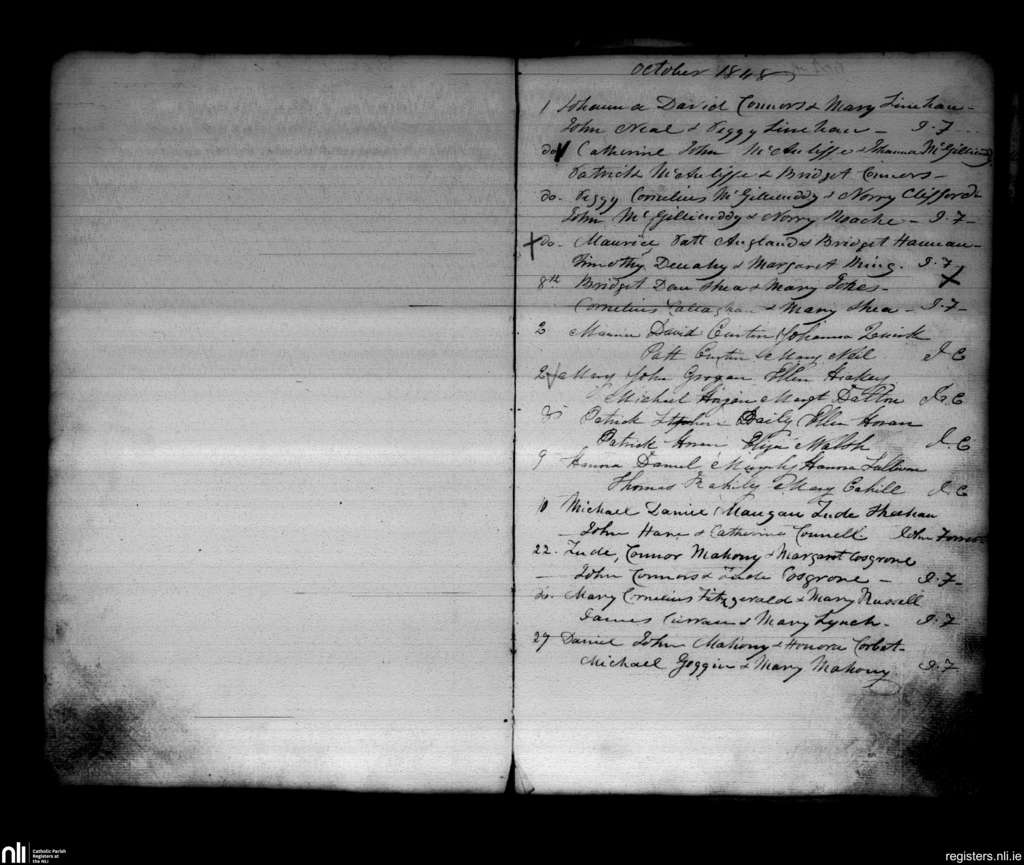 October 1848
1 Johanna David Connors & Mary Linehan -
John Neal & Peggy Linehan - J. F
do Catherine John McAuliffe & Johanna McGillicuddy
Patrick McAuliffe & Bridget Connors -
do. Peggy Cornelius McGillicuddy & Norry Clifford -
John McGillicuddy & Norry Roache - J. F -
X do - Maurice Patt England & Bridget Hannan -
Timothy Denahy & Margaret King. J. F X
8th Bridget Dan Shea & Mary Stokes -
Cornelius Callaghan & Mary Shea - J. F -
2 David Curtin Johanna Quirk
Patt Curtin & Mary Neil J. C
2 Mary John Grogan Ellen Hickey
Michael & Margt Dalton J. C
Patrick Stephen Daily Ellen Horan
Patrick Horan Eliza Walsh J. C
9 Hanora Daniel Murphy Hanora Sullivan
Thomas Rahily & Mary Cahill J. C
10 Michael Daniel Mangan Jude Sheehan
John Hare & Catherine Connell John
22. Jude, Connor Mahony & Margaret Cosgrone
- John Connors & Jude Cosgrone - J. F -
do. Mary Cornelius Fitzgerald & Mary Russell
James Curran & Mary Lynch - J. F
27 Daniel John Mahony & Honora Corbet -
Michael Goggin & Mary Mahony J. F
nli Catholic Parish
Registers at
the NLI
registers.nli.ie